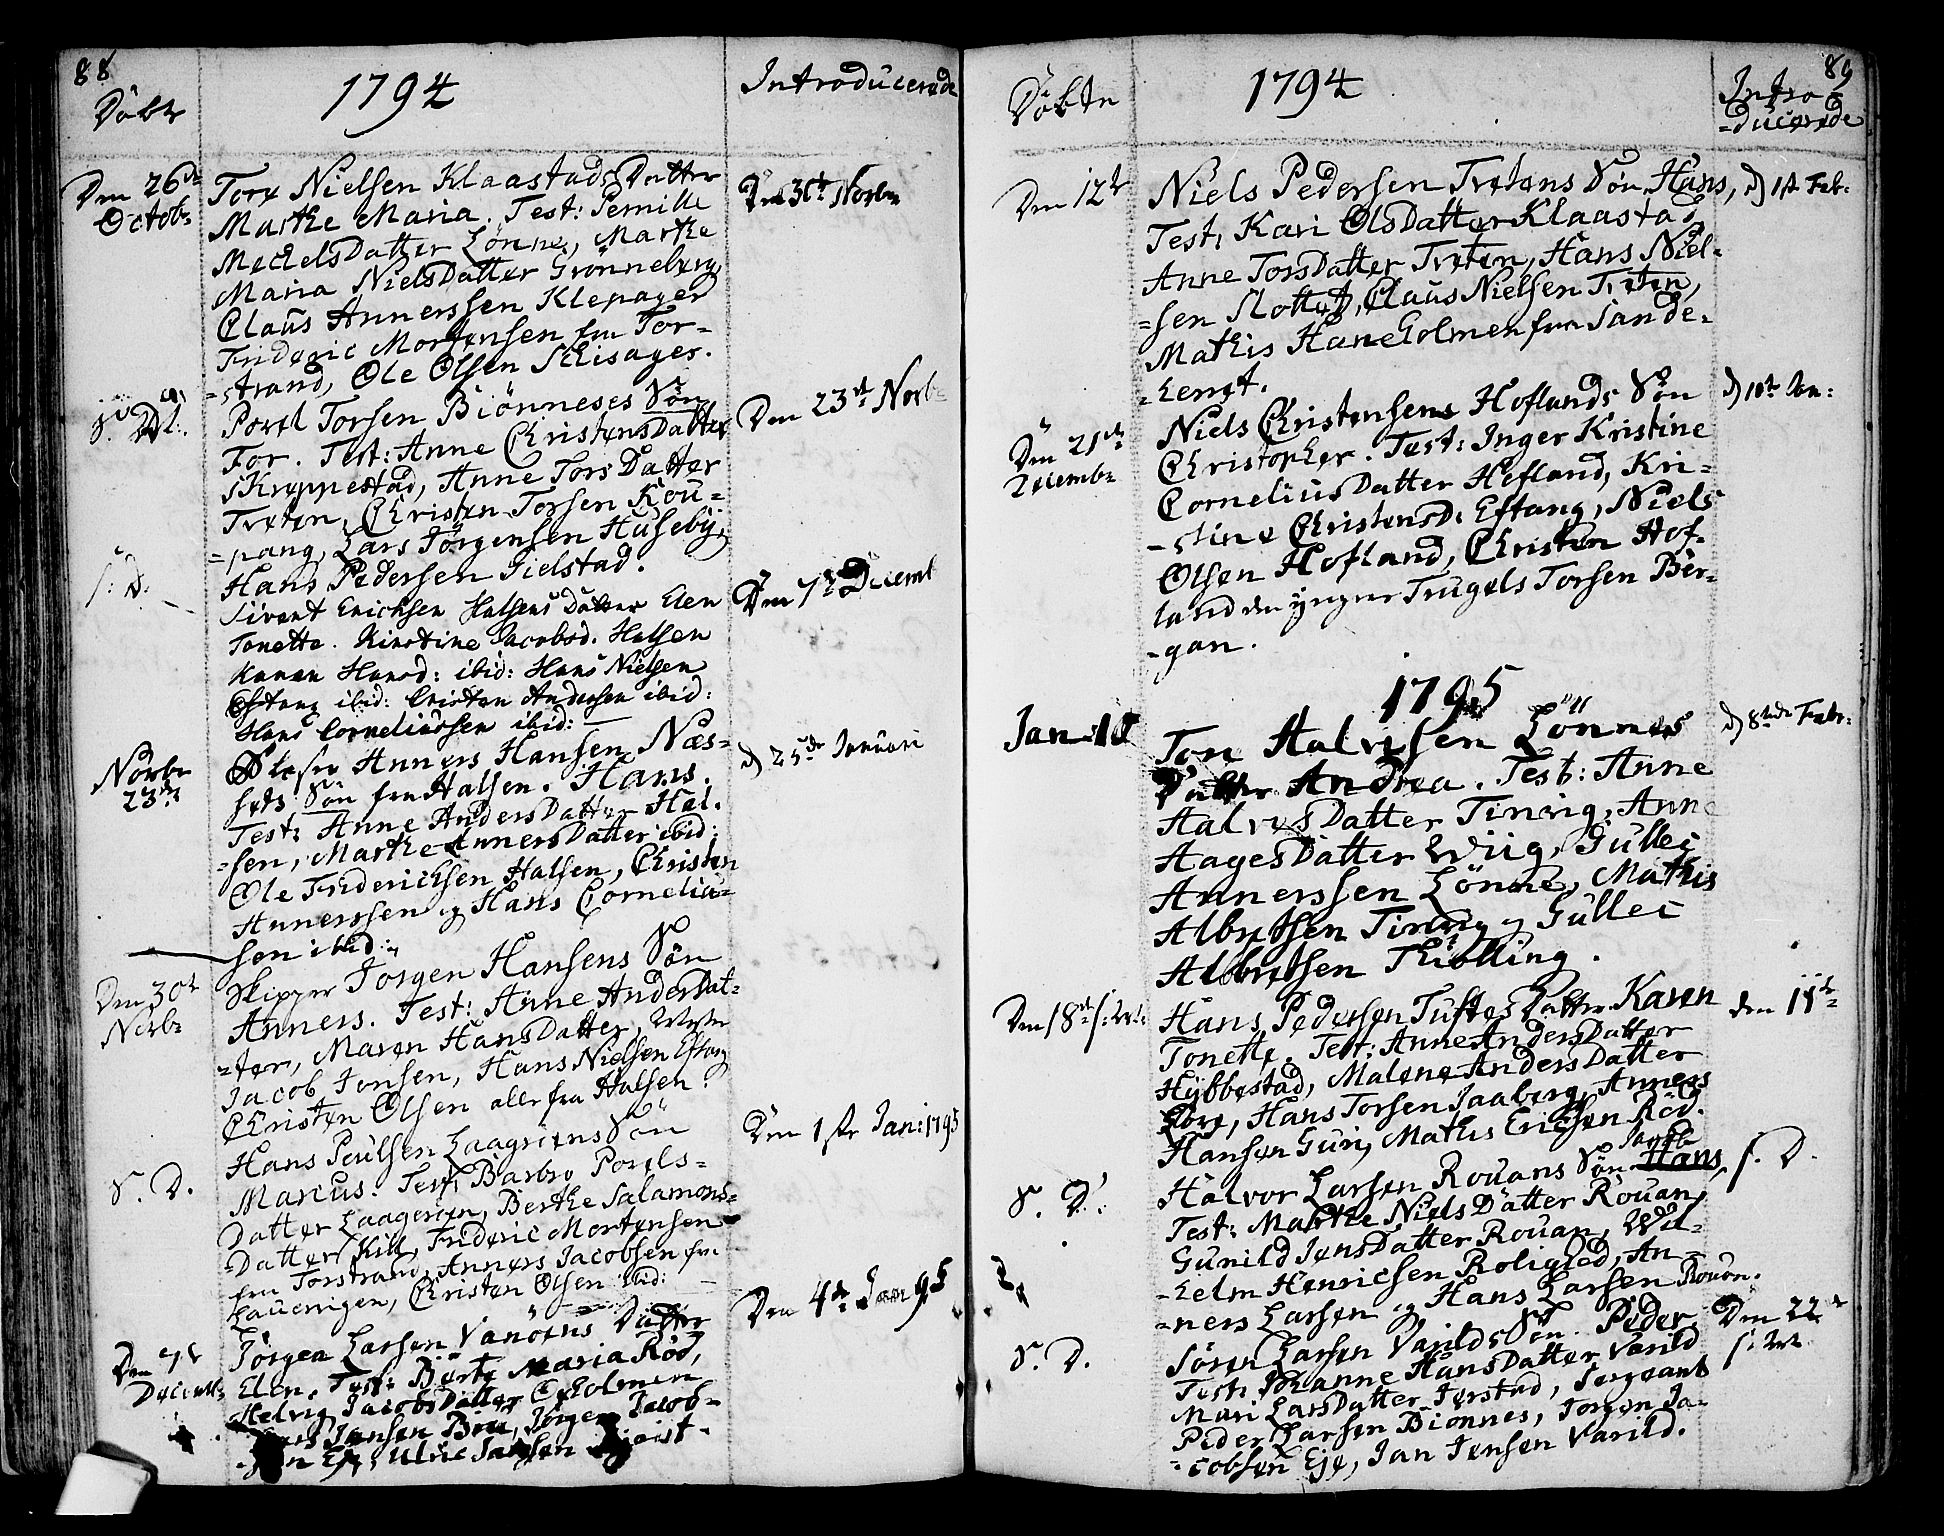 88
Döbte
1794
Introducerede
Den 26de
Octobr
Tore Nielsen Klaastads Datter
Marthe Maria. Test: Pernille
MechelsDatter Lönne, Marthe
Maria NielsDatter Grönneberg,
Claus Annerssen Klepager
Frideric Mortensen fra Tor-
-strand, Ole Olsen Schisager.
Den 30te Novbr
Povel Torsen Biönneses Sön
Tor. Test: Anne ChristensDatter
Skreppestad, Anne TorsDatter
Treten, Christen Torsen Kou-
-pang, Lars Jörgensen Huseby,
Hans Pedersen Gielstad.
Den 23de Novbr
S: D:
Sivert Erichsen Halsens Datter Elen
Tonette. Kirstine Jacobsd. Halsen
Karen Hansd: ibid: Hans Nielsen
Eftang ibid: Cristen Andersen ibid:
Hans Corneliussen ibid:
Den 7de Decembr
Novbr
23de
Anners Hansen Næs-
sets Sön fra Halsen. Hans.
Test: Anne AndersDatter Hal-
-sen, Marthe AnnersDatter ibid:
Ole Friderichsen Halsen, Christen
Annerssen og Hans Cornelius-
sen ibid:
d 25de Januari
Den 30te
Novbr
Skipper Jörgen Hansens Sön
Anners. Test: Anne AndersDat-
-ter, Maren HansDatter,
Jacob Jonsen, Hans Nielsen Eftang
Christen Olsen alle fra Halsen.
S. D.
Hans Poulsen Laagriens Sön
Marcus. Test: Barbro Povels-
Datter Laagerien, Berthe Salamons-
Datter Kill, Frideric Mortensen
fra Torstrand, Anners Jacobsen fra
Lauerigen, Christen Olsen ibid:
Den 1ste Jan: 1795
Den 7de
Decembr
Jörgen Larsen Vanöens Datter
Elen. Test: Berte Maria Röd,
Helvig JacobsDatter Ekholmen
Jansen Bou, Jörgen Jacob-
-sen Eje, Ulric Jansen
Den 4de Jan 95
89
Döbte
1794
Intro-
-ducerede
Den 12te
Niels Pedersen Tretens Sön Hans,
Test: Kari OlsDatter Klaastad,
Anne TorsDatter Treten, Hans Niel-
-sen Slottet, Claus Nielsen Treten,
Mathis Haneholmen fra Sande-
-herret.
d 1ste Feb:
Den 21de
Decembr
Niels Christensens Hoflands Sön
Christopher. Test: Inger Kristine
CorneliusDatter Hofland, Kri-
-stine ChristensD: Eftang, Niels
Olsen Hofland, Christen Hof-
land den yngre Trugels Torsen Ber-
-gan.
1795
Jan: 18
Ton Halvisen Lönnes
Datter Andrea. Test: Anne
HalvesDatter Tinvig, Anne
AagesDatter Wiig, Gullei
Annerssen Lönne, Mathis
Albretsen Tinvig og Gullei
Albretsen Thiölling.
d 8de Febr:
Den 18de
Hans Pedersen Tuftes Datter Karen
Tonette. Test: Anne AndersDatter
Hybbestad, Malene AndersDatter
Hans Torsen Jaaberg, Anners
Hansen Guri, Mathis Erichsen Röd.
den 15de
S. D.
Halvor Larsen Rouans Sön Hans, Jacob
Test: Marthe NielsDatter Rouan,
Gunild JensDatter Rouan, Wil-
-helm Henricsen Rolighed, An-
-ners Larsen og Hans Larsen Rouan.
S. D.
S. D.
Sören Larsen Varilds Sön. Peder
Test: Johanne HansDatter Varild
Mari LarsDatter Jerstad, Sergeant
Peder Larsen Bionnes, Jörgen Ja-
-cobsen Eje, Jan Jensen Varild.
Den 22